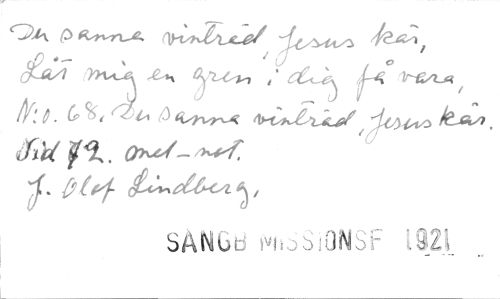 Du sanna vinträd, Jesus kär,
Låt mig en gren i dig få vara,
N:o. 68. Du sanna vinträd, Jesus kär.
Sid 72. mel-not.
J. Olof Lindberg.
SANGB MISSIONSF 1921